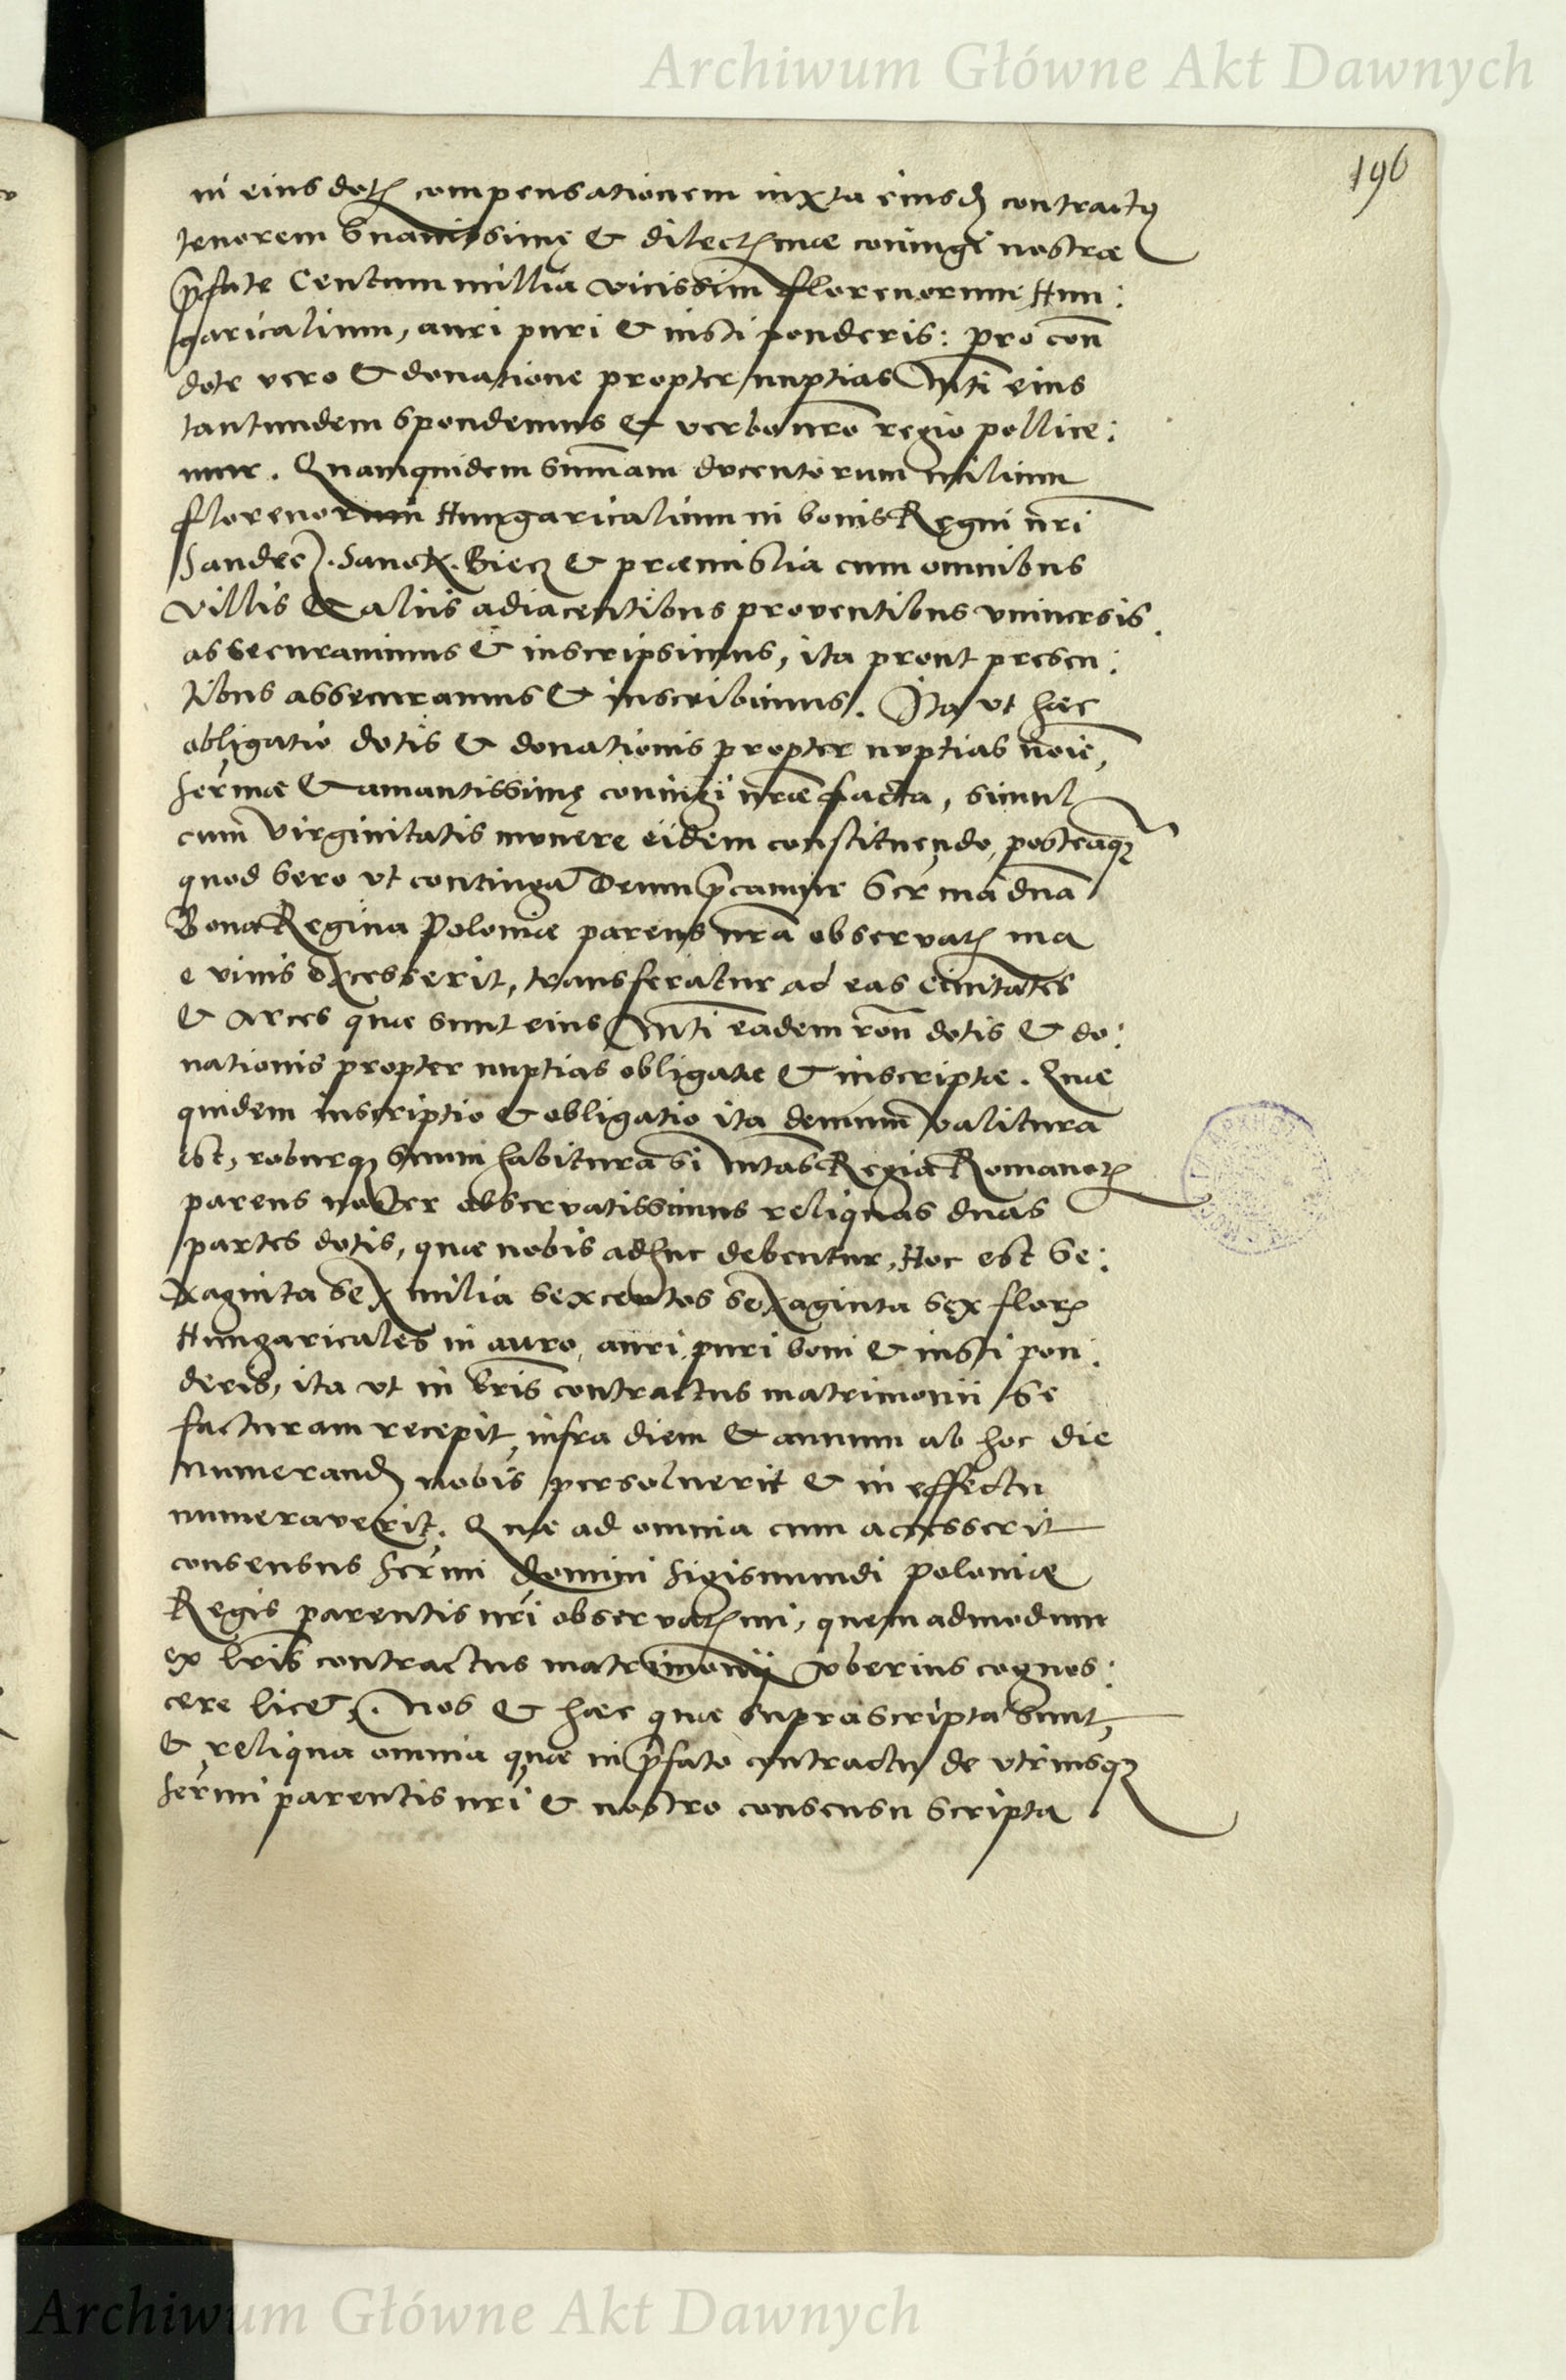 Archiwum Główne Akt Dawnych
196
in eius dotꝭ compensationem iuxta eiusdꝭ contractꝯ
tenorem suavissimę & dilectꝭmae coniugi nostrae
p̄fate Centum millia vicissim florenorum Hun:
garicalium, auri puri & iusti ponderis: pro con̄
dote vero & donatione propter nuptias Mti eius
tantundem spondemus & verbo nr̄o regio pollice:
mur. Quamquidem sum̄am ducentorum milium
florenorum Hungaricalium in bonis Regni nr̄i
Sandec. Sanok. Biecz & praemislia cum omnibus
villis & aliis adiacentibus proventibus vniuersis.
assecuravimus & inscripsimus, ita prout presen:
tibus assecuramus & inscribimus. Ita vt haec
obligatio dotis & donationis propter nuptias noīe
serm̄ae & amantissimę coniugi nr̄ae facta, simul
cum virginitatis munere eidem constituendo, posteaqꝫ
quod sero vt contingat Deum p̄camur Serma dn̄a
Bona Regina Poloniae parens nr̄a observatꝭ ma
e vivis excesserit, transferatur ad eas civitates
& arces quae sunt eius Mti eadem rōn dotis & do:
nationis propter nuptias obligatae & inscriptae. Quae
quidem inscriptio & obligatio ita demum valitura
est, roburqꝫ suum habitura si Mtas Regia Romanorꝭ
parens noster observatissimus reliquas duas
partes dotis, quae nobis adhuc debentur, Hoc est se:
xaginta sex milia sexcentos sexaginta sex florꝭ
Hungaricales in auro, auri puri boni & iusti pon:
deris, ita vt in lr̄is contractus matrimonii se
facturam recepit, infra diem & annum ab hoc die
numerandꝭ nobis persoluerit & in effectu
numeraverit. Quae ad omnia cum accesserit
consensus Serm̄i domini Sigismundi Poloniae
Regis parentis nr̄i observatꝭmi, quemadmodum
ex lr̄is contractus matrimonij vberius cognos:
cere licet. Nos & haec quae suprascripta sunt,
& reliqua omnia quae in p̄fato contractu de vtriusqꝫ
Serm̄i parentis nr̄i & nostro consensu scripta
Archiwum Główne Akt Dawnych